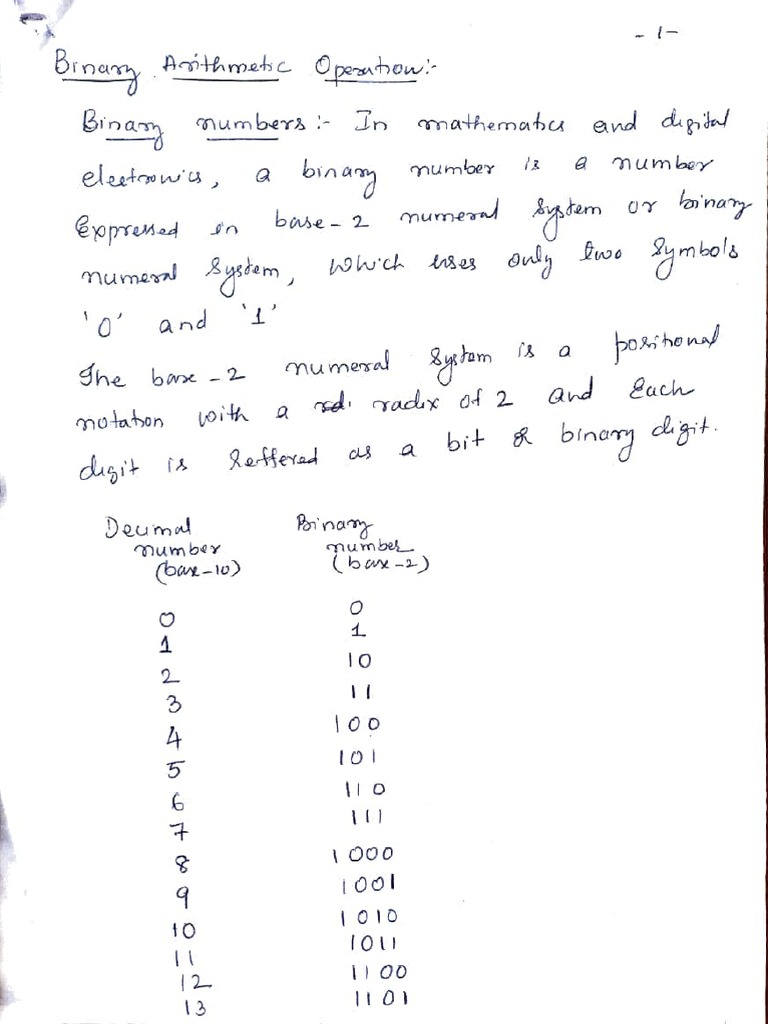 - 1 -
Binary Arithmetic Operation:-
Binary numbers:- In mathematics and digital
electronics, a binary number is a number
Expressed in base-2 numeral system or binary
numeral system, which uses only two symbols
'0' and '1'
The base-2 numeral system is a positional
notation with a radix of 2 and Each
digit is Reffered as a bit or binary digit.
Decimal number (base-10) Binary number (base-2)
0 0
1 1
2 10
3 11
4 100
5 101
6 110
7 111
8 1000
9 1001
10 1010
11 1011
12 1100
13 1101